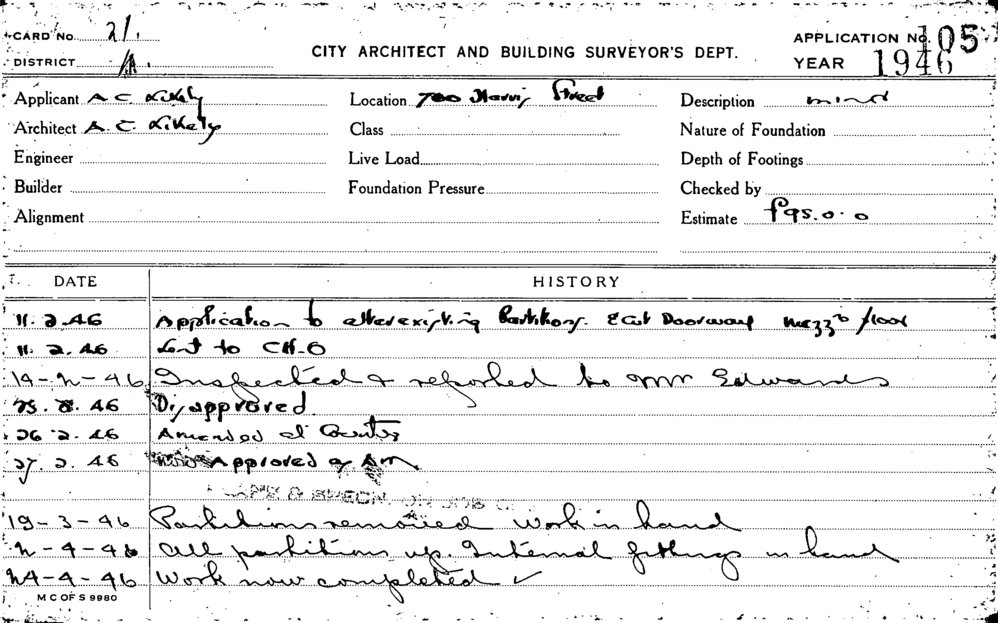 CARD No. 2/1.
DISTRICT
CITY ARCHITECT AND BUILDING SURVEYOR'S DEPT.
APPLICATION No. 105
YEAR 1946
Applicant A C Likely Location 700 Harris Street Description minor
Architect A. C. Likely Class Nature of Foundation
Engineer Live Load Depth of Footings
Builder Foundation Pressure Checked by
Alignment Estimate £95.0.0
DATE HISTORY
11.2.46 Application to alter existing Partitions. & Cut Doorway mezz floor
11.2.46 Sent to CH-O
14-2-46 Inspected & reported to Mr Edwards
25.2.46 Disapproved.
26.2.46 Amended at Counter
27.2.46 Approved
& SPECN. ON JOB
19-3-46 Partitions removed work in hand
2-4-46 All partitions up. Internal fittings in hand
24-4-46 Work now completed ✓
M C OF S 9980